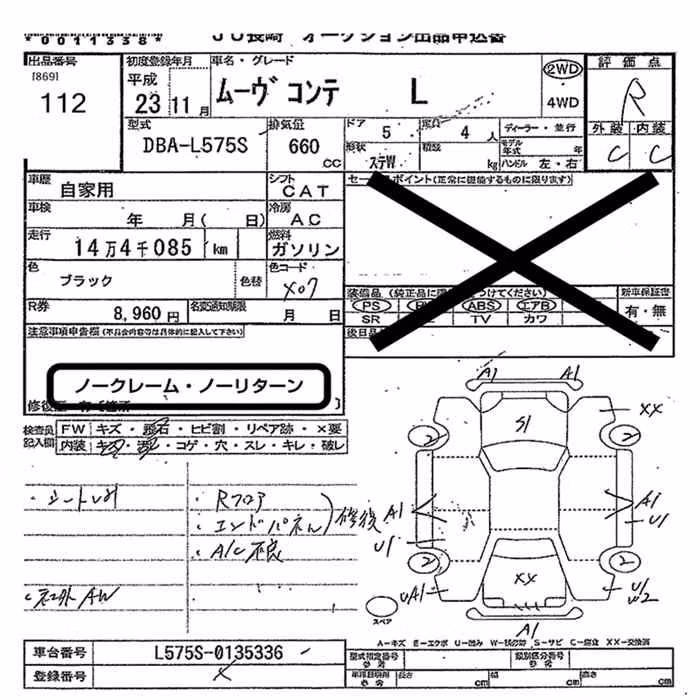 *0011338*
JU長崎 オークション出品申込書
出品番号
[869]
112
初度登録年月
平成
23 11 月
車名・グレード
ムーヴ コンテ L
2WD
4WD
評価点
R
外装 内装
C C
型式
DBA-L575S
排気量
660
CC
ドア 5
形状
ステW
定員 4 人
積載 kg
ディーラー・並行
モデル年式 年
ハンドル 左・右
車歴
自家用
シフト
CAT
車検
年 月( 日)
冷房
AC
走行
14万4千085 km
燃料
ガソリン
色
ブラック
色替
色コード
X07
R券
8,960 円
名変通知期限
月 日
セールスポイント(正常に機能するものに限ります)
装備品 (純正品に限 つけてください)
PS ABS エアB
SR TV カワ
新車保証書
有・無
後日品
注意事項申告欄 (不具合内容等は具体的に記入して下さい)
ノークレーム・ノーリターン
検査員
記入欄
FW キズ・飛石・ヒビ割・リペア跡・×要
内装 キズ・汚レ・コゲ・穴・スレ・キレ・破レ
・Rフロア
・エンドパネル
修復
・A/C不良
・社外AW
A1 A1
S1
XX
2 2
A1 A1
U1
U1
2 2
UA1
XX
U1
W2
A1
スペア
A-キズ E-エクボ U-凹み W-波の跡 S-サビ C-腐食 XX-交換済
車台番号
L575S-0135336
登録番号
型式指定番号
類別区分番号
長さ cm 幅 cm 高さ cm